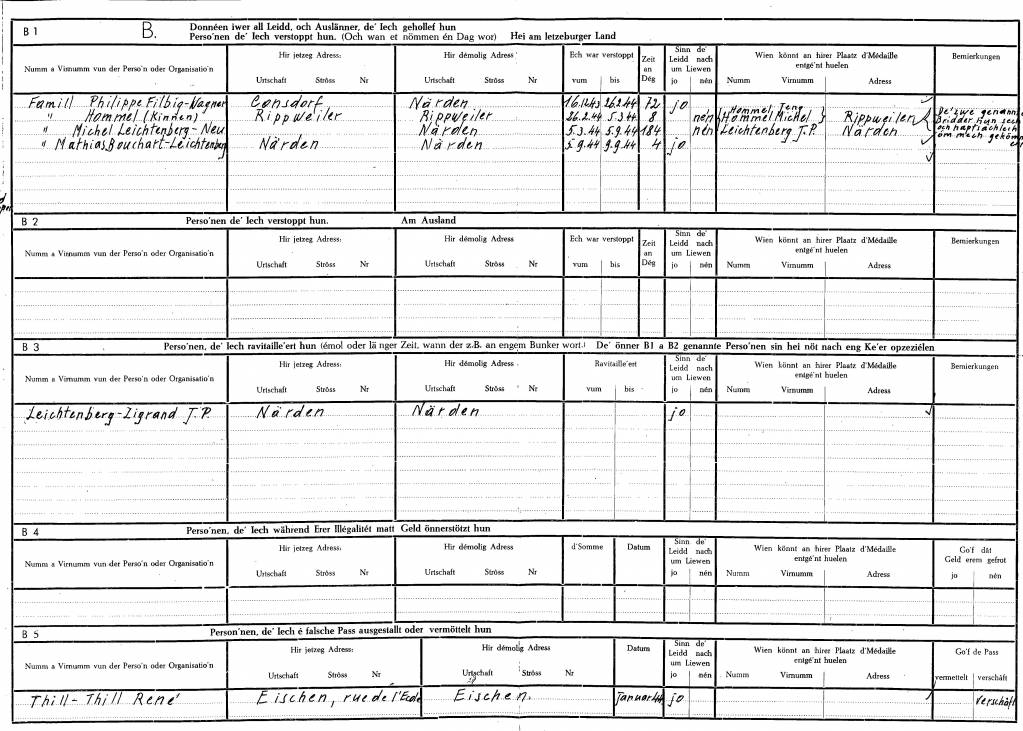 B 1 B. Donnéen iwer all Leidd, och Auslänner, de' Iech gehollef hun
Perso'nen de' Iech verstoppt hun. (Och wan et nömmen én Dag wor) Hei am letzeburger Land
Numm a Virnumm vun der Perso'n oder Organisatio'n
Hir jetzeg Adress: Urtschaft Ströss Nr
Hir démolig Adress Urtschaft Ströss Nr
Ech war verstoppt vum bis
Zeit an Dég
Sinn de' Leidd nach um Liewen jo nén
Wien könnt an hirer Plaatz d'Médaille entgé'nt huelen Numm Virnumm Adress
Bemierkungen
Famill Philippe Filbig-Wagner Consdorf Närden 16.12.43 26.2.44 72 jo
" Hommel (Kinnen) Rippweiler Rippweiler 26.2.44 5.3.44 8 nén Hommel Jeng Hommel Michel Rippweiler
" Michel Leichtenberg-Neu Närden 5.3.44 5.9.44 184 nén Leichtenberg J.P. Närden
" Mathias Bouchart-Leichtenberg Närden Närden 5.9.44 9.9.44 4 jo
De' zwe genannt
Bridder hun sech
och haptsächlech
om mech gekömm
B 2 Perso'nen de' Iech verstoppt hun. Am Ausland
Numm a Virnumm vun der Perso'n oder Organisatio'n
Hir jetzeg Adress: Urtschaft Ströss Nr
Hir démolig Adress Urtschaft Ströss Nr
Ech war verstoppt vum bis
Zeit an Dég
Sinn de' Leidd nach um Liewen jo nén
Wien könnt an hirer Plaatz d'Médaille entgé'nt huelen Numm Virnumm Adress
Bemierkungen
B 3 Perso'nen, de' Iech ravitaille'ert hun (émol oder länger Zeit, wann der z.B. an engem Bunker wort.) De' önner B1 a B2 genannte Perso'nen sin hei nöt nach eng Ke'er opzeziélen
Numm a Virnumm vun der Perso'n oder Organisatio'n
Hir jetzeg Adress: Urtschaft Ströss Nr
Hir démolig Adress Urtschaft Ströss Nr
Ravitaille'ert vum bis
Sinn de' Leidd nach um Liewen jo nén
Wien könnt an hirer Plaatz d'Médaille entgé'nt huelen Numm Virnumm Adress
Bemierkungen
Leichtenberg-Zigrand J.P. Närden Närden jo
B 4 Perso'nen, de' Iech während Erer Illégalitét matt Geld önnerstötzt hun
Numm a Virnumm vun der Perso'n oder Organisatio'n
Hir jetzeg Adress: Urtschaft Ströss Nr
Hir démolig Adress Urtschaft Ströss Nr
d'Somme
Datum
Sinn de' Leidd nach um Liewen jo nén
Wien könnt an hirer Plaatz d'Médaille entgé'nt huelen Numm Virnumm Adress
Go'f dât Geld erem gefrot jo nén
B 5 Person'nen, de' Iech é falsche Pass ausgestallt oder vermöttelt hun
Numm a Virnumm vun der Perso'n oder Organisatio'n
Hir jetzeg Adress: Urtschaft Ströss Nr
Hir démolig Adress Urtschaft Ströss Nr
Datum
Sinn de' Leidd nach um Liewen jo nén
Wien könnt an hirer Plaatz d'Médaille entgé'nt huelen Numm Virnumm Adress
Go'f de Pass vermettelt verschäft
Thill-Thill René Eischen, rue de l'Ecole Eischen. Januar 44 jo verschäft